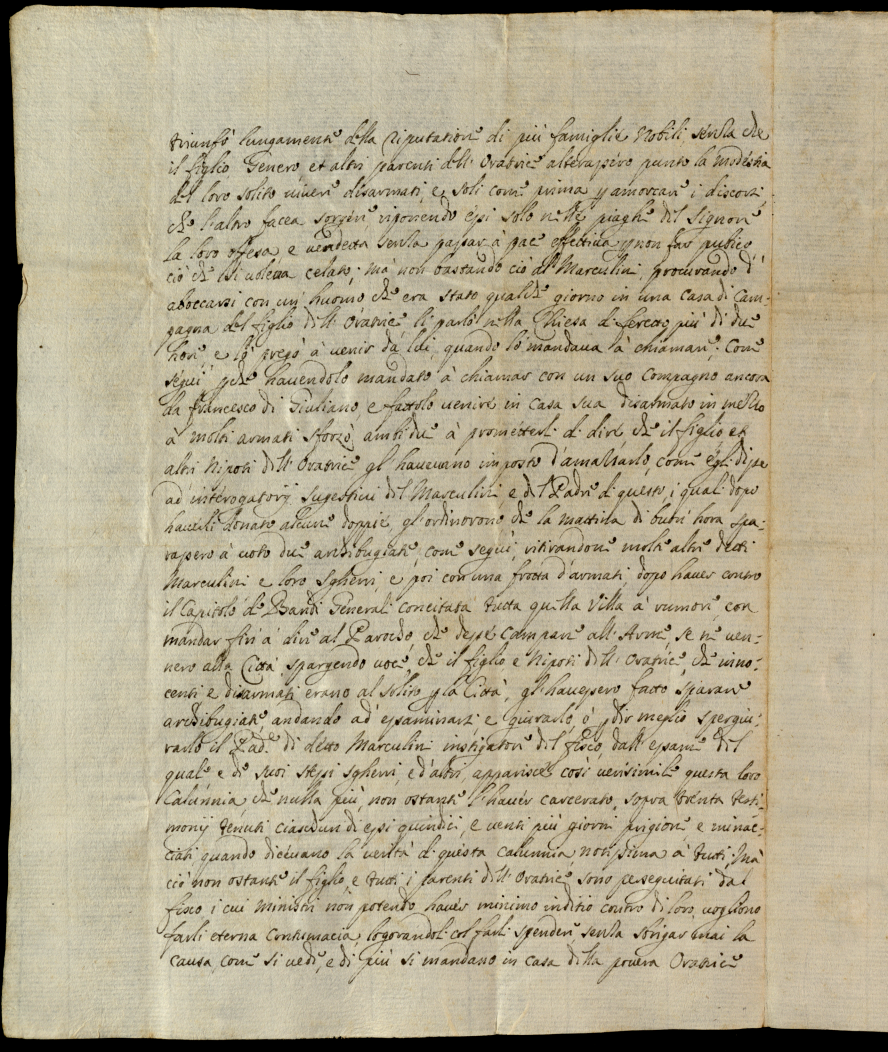 triunfò lungamente della riputatione di più famiglie Nobili senza che
il figlio, Genero, et altri parenti dell'Oratrice alterassero punto la modestia
del loro solito vivere disarmati, e soli come prima p amorzare i discorsi
che l'altro facea sorgere riponendo essi solo nelle piaghe del Signore
la loro offesa, e vendetta senza passar à pace effettiva p non far publico
ciò che si voleva celato; mà non bastando ciò al Marculini, procurando d'
aboccarsi con un huomo che era stato qualche giorno in una casa di Cam-
pagna del figlio dell'Oratrice li parlò nella Chiesa di ferceto più di due
hore, e lo pregò à venir dà lui, quando lo mandava à chiamare; Come
seguì p che havendolo mandato à chiamar con un suo Compagno ancora
da francesco di Giuliano, e fattolo venire in casa sua disarmato in mezzo
à molti armati sforzò ambidue à prometterli di dire che il figlio et
altri Nipoti dell'Oratrice gl'havevano imposto d'amazzarlo, come egli disse
ad interogatorij sugestivi del Marculini, e del Padre di questo, i quali dopo
haverli donato alcune doppie, gl'ordinorono che la mattina di buon'hora spa-
rassero à voto due archibugiate, come seguì, ritirandone molte altre detti
Marculini e loro sgherri, e poi con una frotta d'armati, dopo haver contro
il Capitolo de Bandi Generali concitata tutta quella Villa à rumore, con
mandar fin à dire al Parocho, che desse Campana all'Arme, se ne ven-
nero alla Città spargendo voce, che il figlio e Nipoti dell'Oratrice, che inno-
centi e disarmati erano al solito p la Città, gl'havessero fatto sparare
archibugiate andando ad essaminarsi, e giurarlo, ò p dir meglio spergiu-
rarlo il Pad.e di detto Marculini instigatore del fisco, dall'essame del
quale e de suoi stessi sgherri, e d'altri, apparisce così verisimile questa loro
Calunnia, che nulla più, non ostante l'haver carcerato, sopra trenta testi-
monij tenuti ciaschedun di essi quindici, e venti più giorni prigione e minac-
ciati quando dicevano la verità di questa calunnia notissima à tutti; Mà
ciò non ostante il figlio, e tutti i parenti dell'Oratrice, sono perseguitati dal
fisco i cui Ministri non potendo haver minimo inditio contro di loro, vogliono
farli eterna Contumacia, logorandoli col farli spendere senza sbrigar mai la
causa, come si vede, e di più si mandano in casa della povera Oratrice